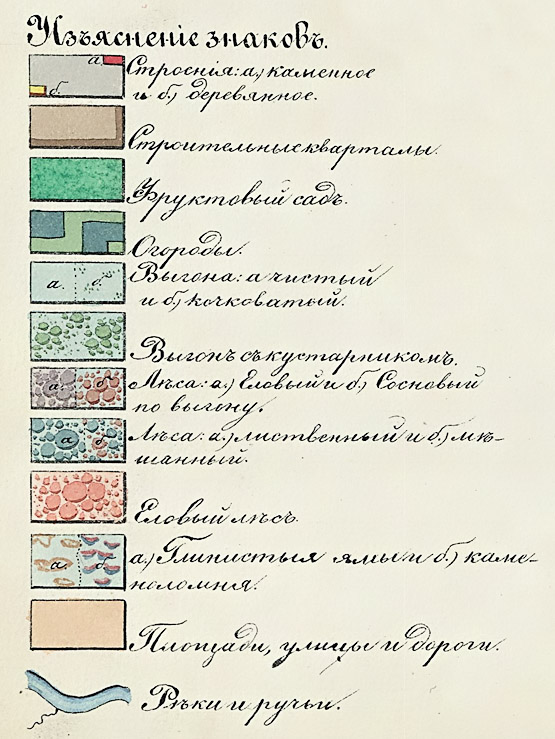 Изъясненіе знаковъ.
а. б.
Строенія: а.) каменное
и б.) деревянное.
Строительные кварталы.
Фруктовый садъ.
Огороды.
а. б.
Выгона: а чистый
и б.) кочковатый.
Выгонъ съ кустарникомъ.
а. б.
Лѣса: а.) Еловый и б.) Сосновый
по выгону.
а б.
Лѣса: а.) лиственный и б.) мѣ-
шанный.
Еловый лѣсъ.
а. б.
а.) Глинистыя ямы и б.) каме-
ноломня.
Площади, улицы и дороги.
Рѣки и ручьи.